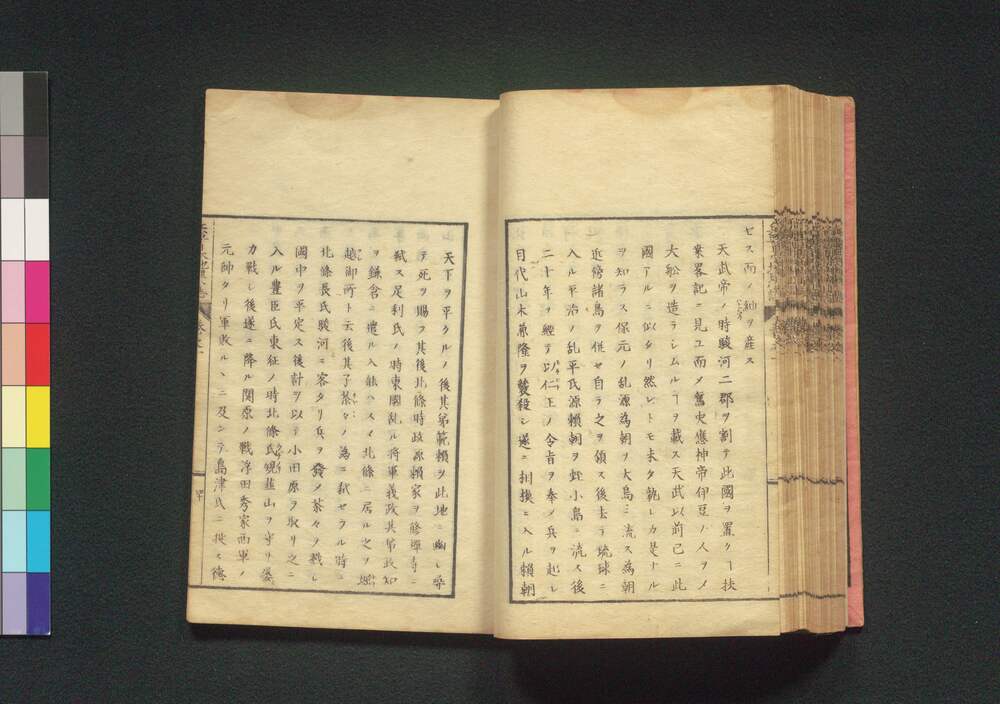 セス而ノ紬ヲ産ス
天武帝ノ時駿河二郡ヲ割テ此國ヲ置クヿ扶
桑畧記ニ見ユ而メ舊史應神帝伊豆ノ人ヲメ
大舩ヲ造ラシムルヿヲ載ス天武以前已ニ此
國アルニ似タリ然レトモ未タ孰レカ是ナル
ヲ知ラス保元ノ乱源為朝ヲ大島ニ流ス為朝
近傍諸島ヲ併セ自ラ之ヲ領ス後去ラ琉球ニ
入ル平治ノ乱平氏源頼朝ヲ蛭小島ニ流ス後
二十年ヲ經テ以仁王ノ令旨ヲ奉メ兵ヲ起シ
目代山木兼隆ヲ襲殺シ遂ニ相摸ニ入ル頼朝
天下ヲ平クルノ後其弟範頼ヲ此地ニ幽シ尋
テ死ヲ賜フ其後北條時政源頼家ヲ修禅寺ニ
弑ス足利氏ノ時東國乱ル将軍義政其弟政知
ヲ鎌倉ニ遣ル入ル能ハス北條ニ居ル之ヲ堀
越御所ト云後其子茶々ノ為ニ弑セラル時ニ
北條長氏駿河ニ客タリ兵ヲ發メ茶々ヲ戮シ
國中ヲ平定ス後計ヲ以テ小田原ヲ取リ之ニ
入ル豊臣氏東征ノ時北條氏規韮山ヲ守リ
カ戦シ後遂ニ降ル関原ノ戦浮田秀家西軍ノ
元帥タリ軍敗ルヽニ及ンテ島津氏ニ投ス徳